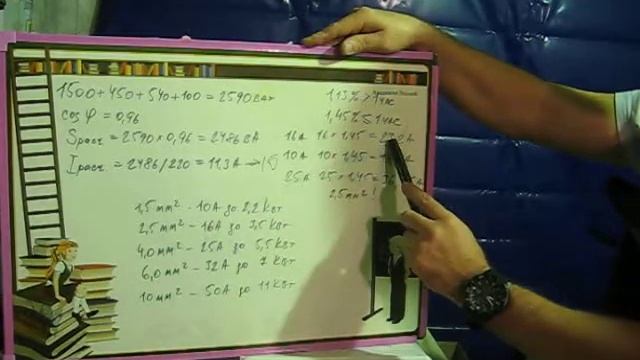 1500+450+540+100 = 2590 ват
cos φ = 0,96
Sрасч. = 2590 × 0,96 = 2486 ВА
Iрасч. = 2486/220 = 11,3 А
1,13% > 1 час
1,45% ≤ 1 час
16А 16 × 1,45 =
10А 10 × 1,45 =
25А 25 × 1,45 =
2,5 mm² !
1,5 mm² – 10А до 2,2 кВт
2,5 mm² – 16А до 3,5 кВт
4,0 mm² – 25А до 5,5 кВт
6,0 mm² – 32А до 7 кВт
10 mm² – 50А до 11 кВт